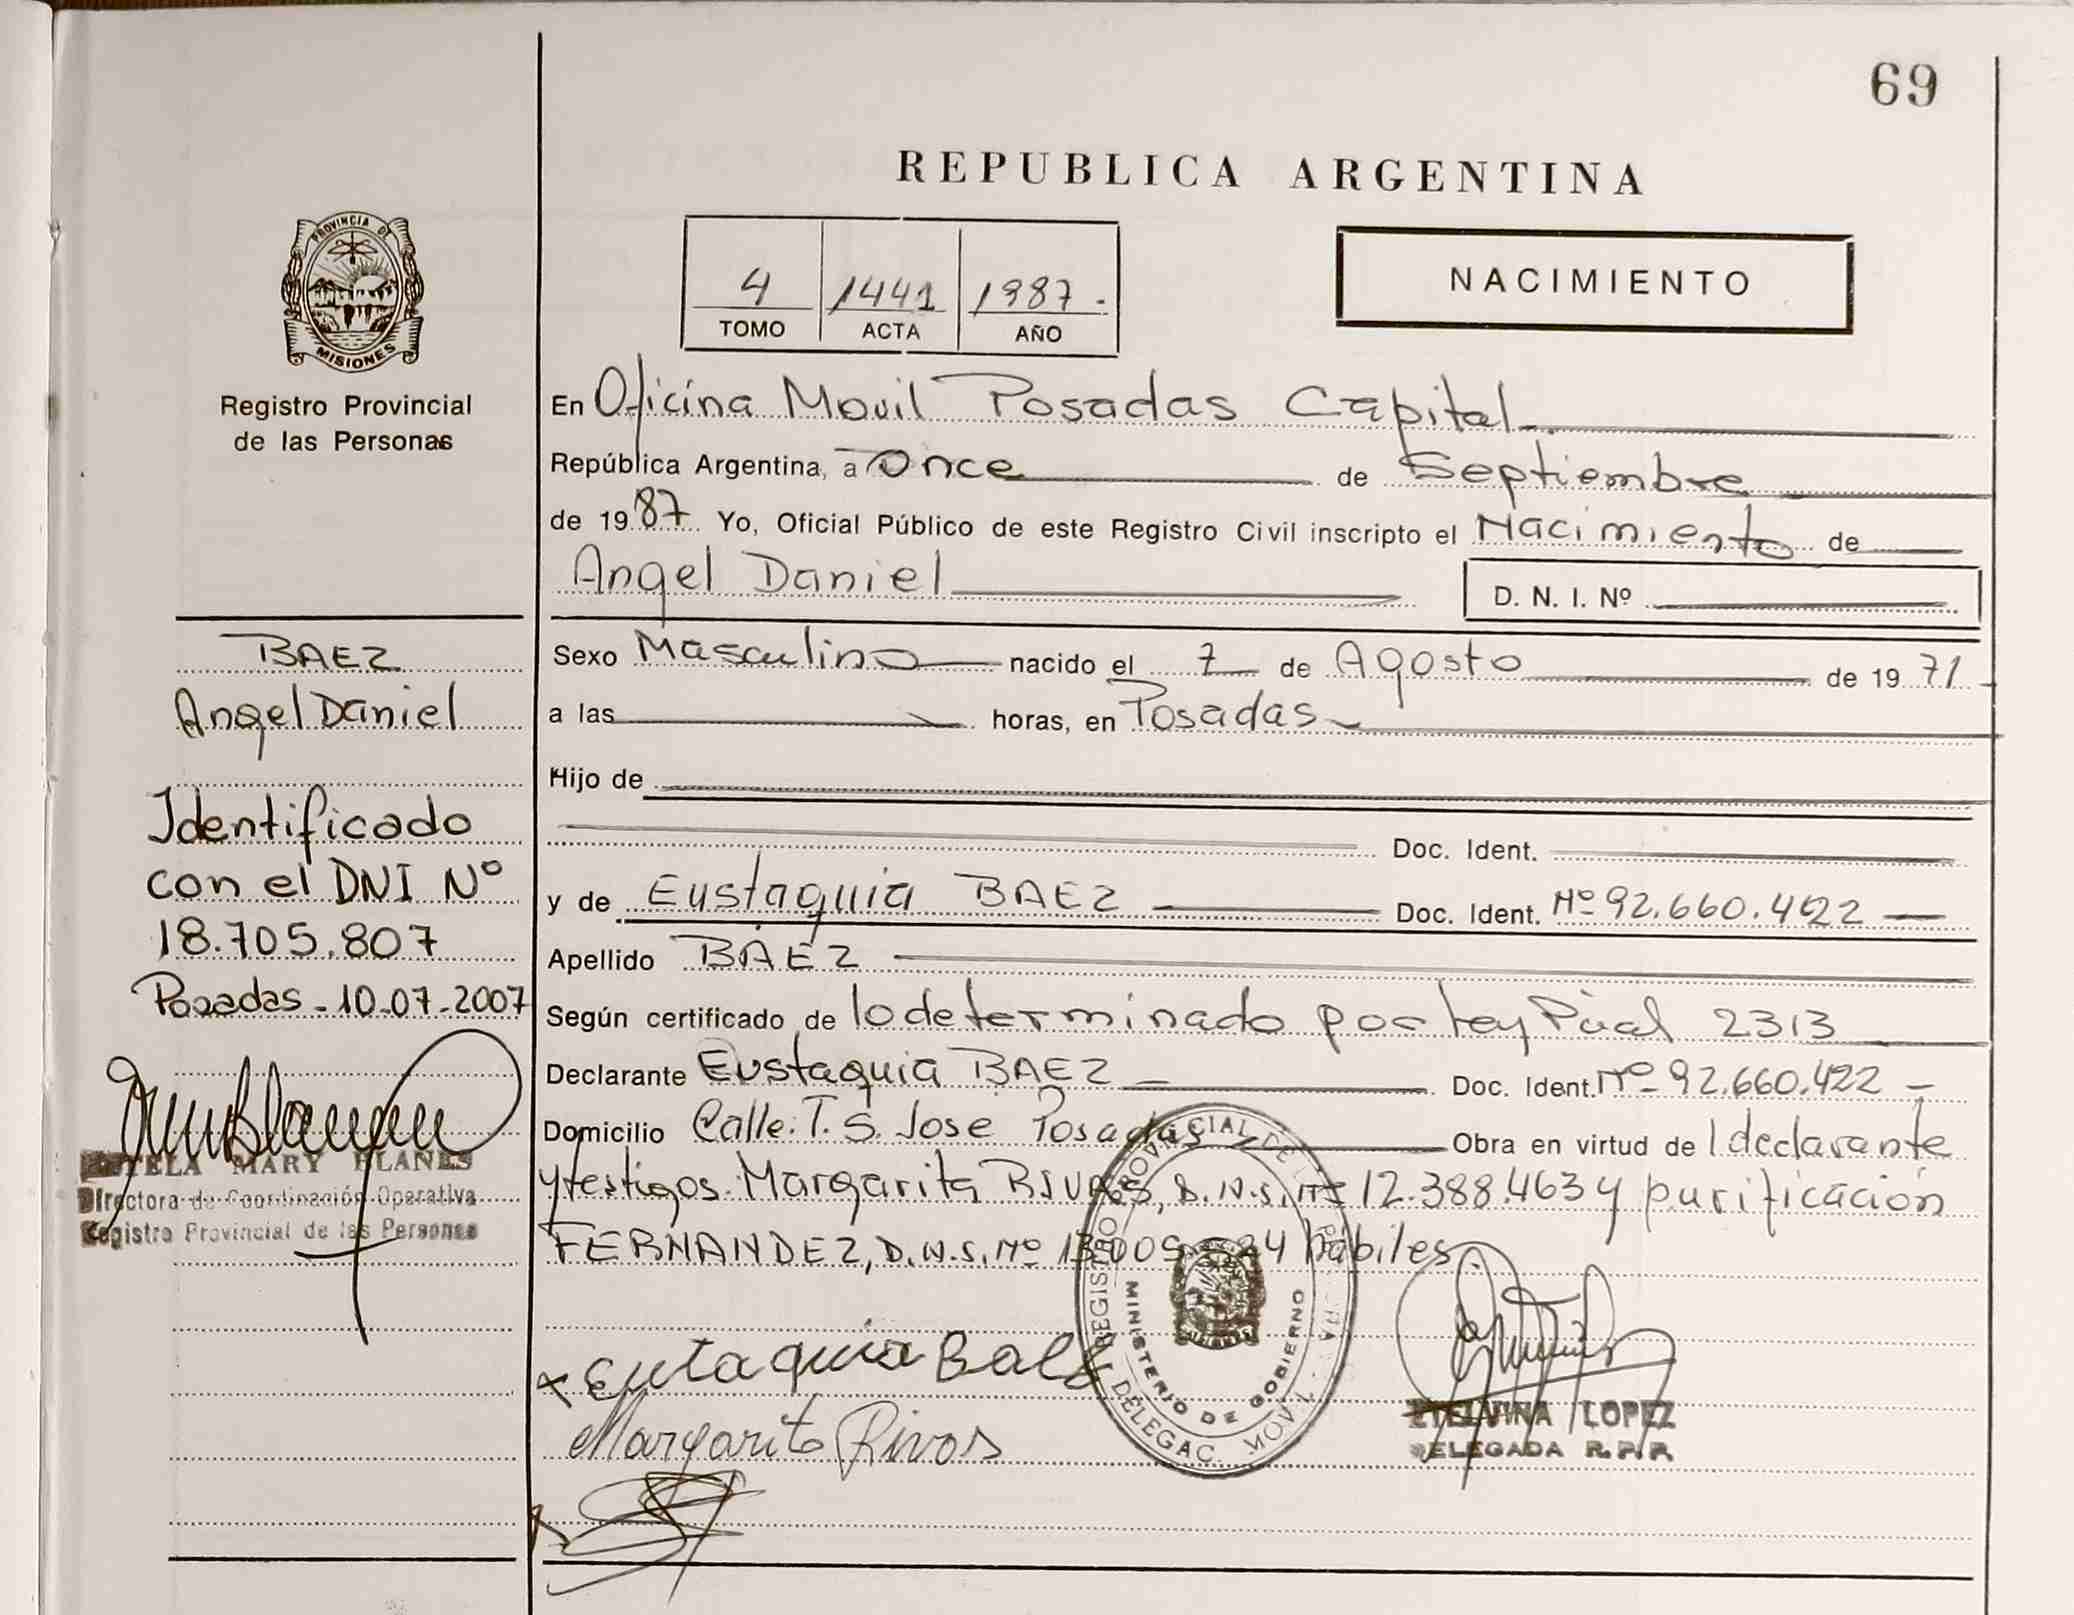 69
REPUBLICA ARGENTINA
PROVINCIA DE
MISIONES
Registro Provincial
de las Personas
4 1441 1987.-
TOMO ACTA AÑO
NACIMIENTO
En Oficina Movil Posadas Capital
República Argentina, a Once de Septiembre
de 1987 Yo, Oficial Público de este Registro Civil inscripto el Nacimiento de
Angel Daniel
D. N. I. Nº
BAEZ
Angel Daniel
Identificado
con el DNI Nº
18.705.807
Posadas - 10-07-2007
ESTELA MARY BLANES
Directora de Coordinación Operativa
Registro Provincial de las Personas
Sexo Masculino nacido el 7 de Agosto de 1971
a las horas, en Posadas
Hijo de
Doc. Ident.
y de Eustaquia BAEZ Doc. Ident. Nº 92.660.422
Apellido BAEZ
Según certificado de lo determinado por Ley 2313
Declarante Eustaquia BAEZ Doc. Ident. Nº 92.660.422
Domicilio Calle: T. S. Jose Posadas Obra en virtud de l declarante
y testigos: Margarita RIVAS, D.N.I. Nº 12.388.463 y purificación
FERNANDEZ, D.N.I. Nº habiles.
REGISTRO PROVINCIAL DE
MINISTERIO DE GOBIERNO
DELEGAC. MOVIL
Eutaquia Baes
Margarita Rivas
ETELVINA LOPEZ
DELEGADA R.P.P.